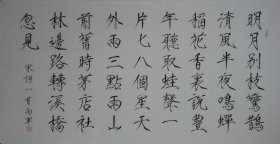 明月别枝驚鵲
清風半夜鳴蟬
稻花香裏説豐
年聽取蛙聲一
片七八個星天
外兩三點雨山
前舊時茅店社
林邊路轉溪橋
忽見
宋詞一首